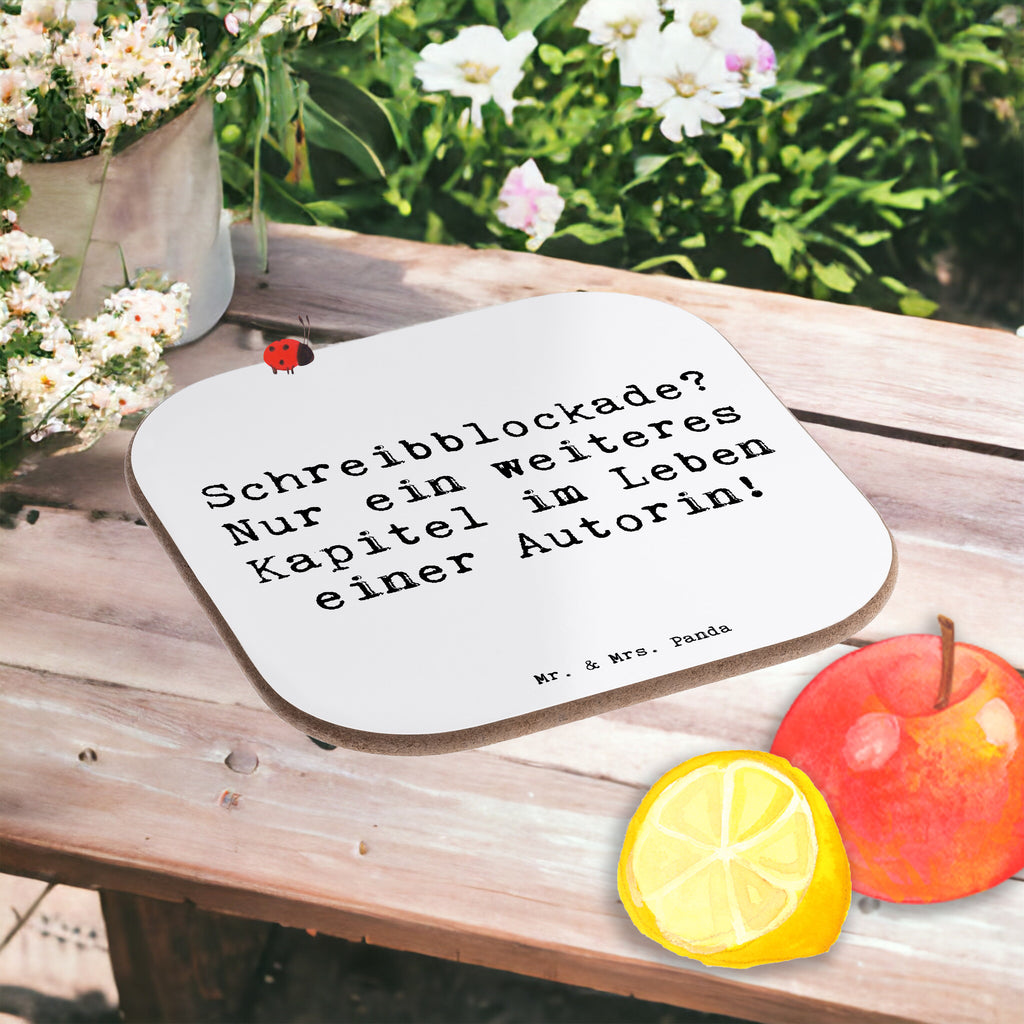 Schreibblockade?
Nur ein weiteres
Kapitel im Leben
einer Autorin!
Mr. & Mrs. Panda